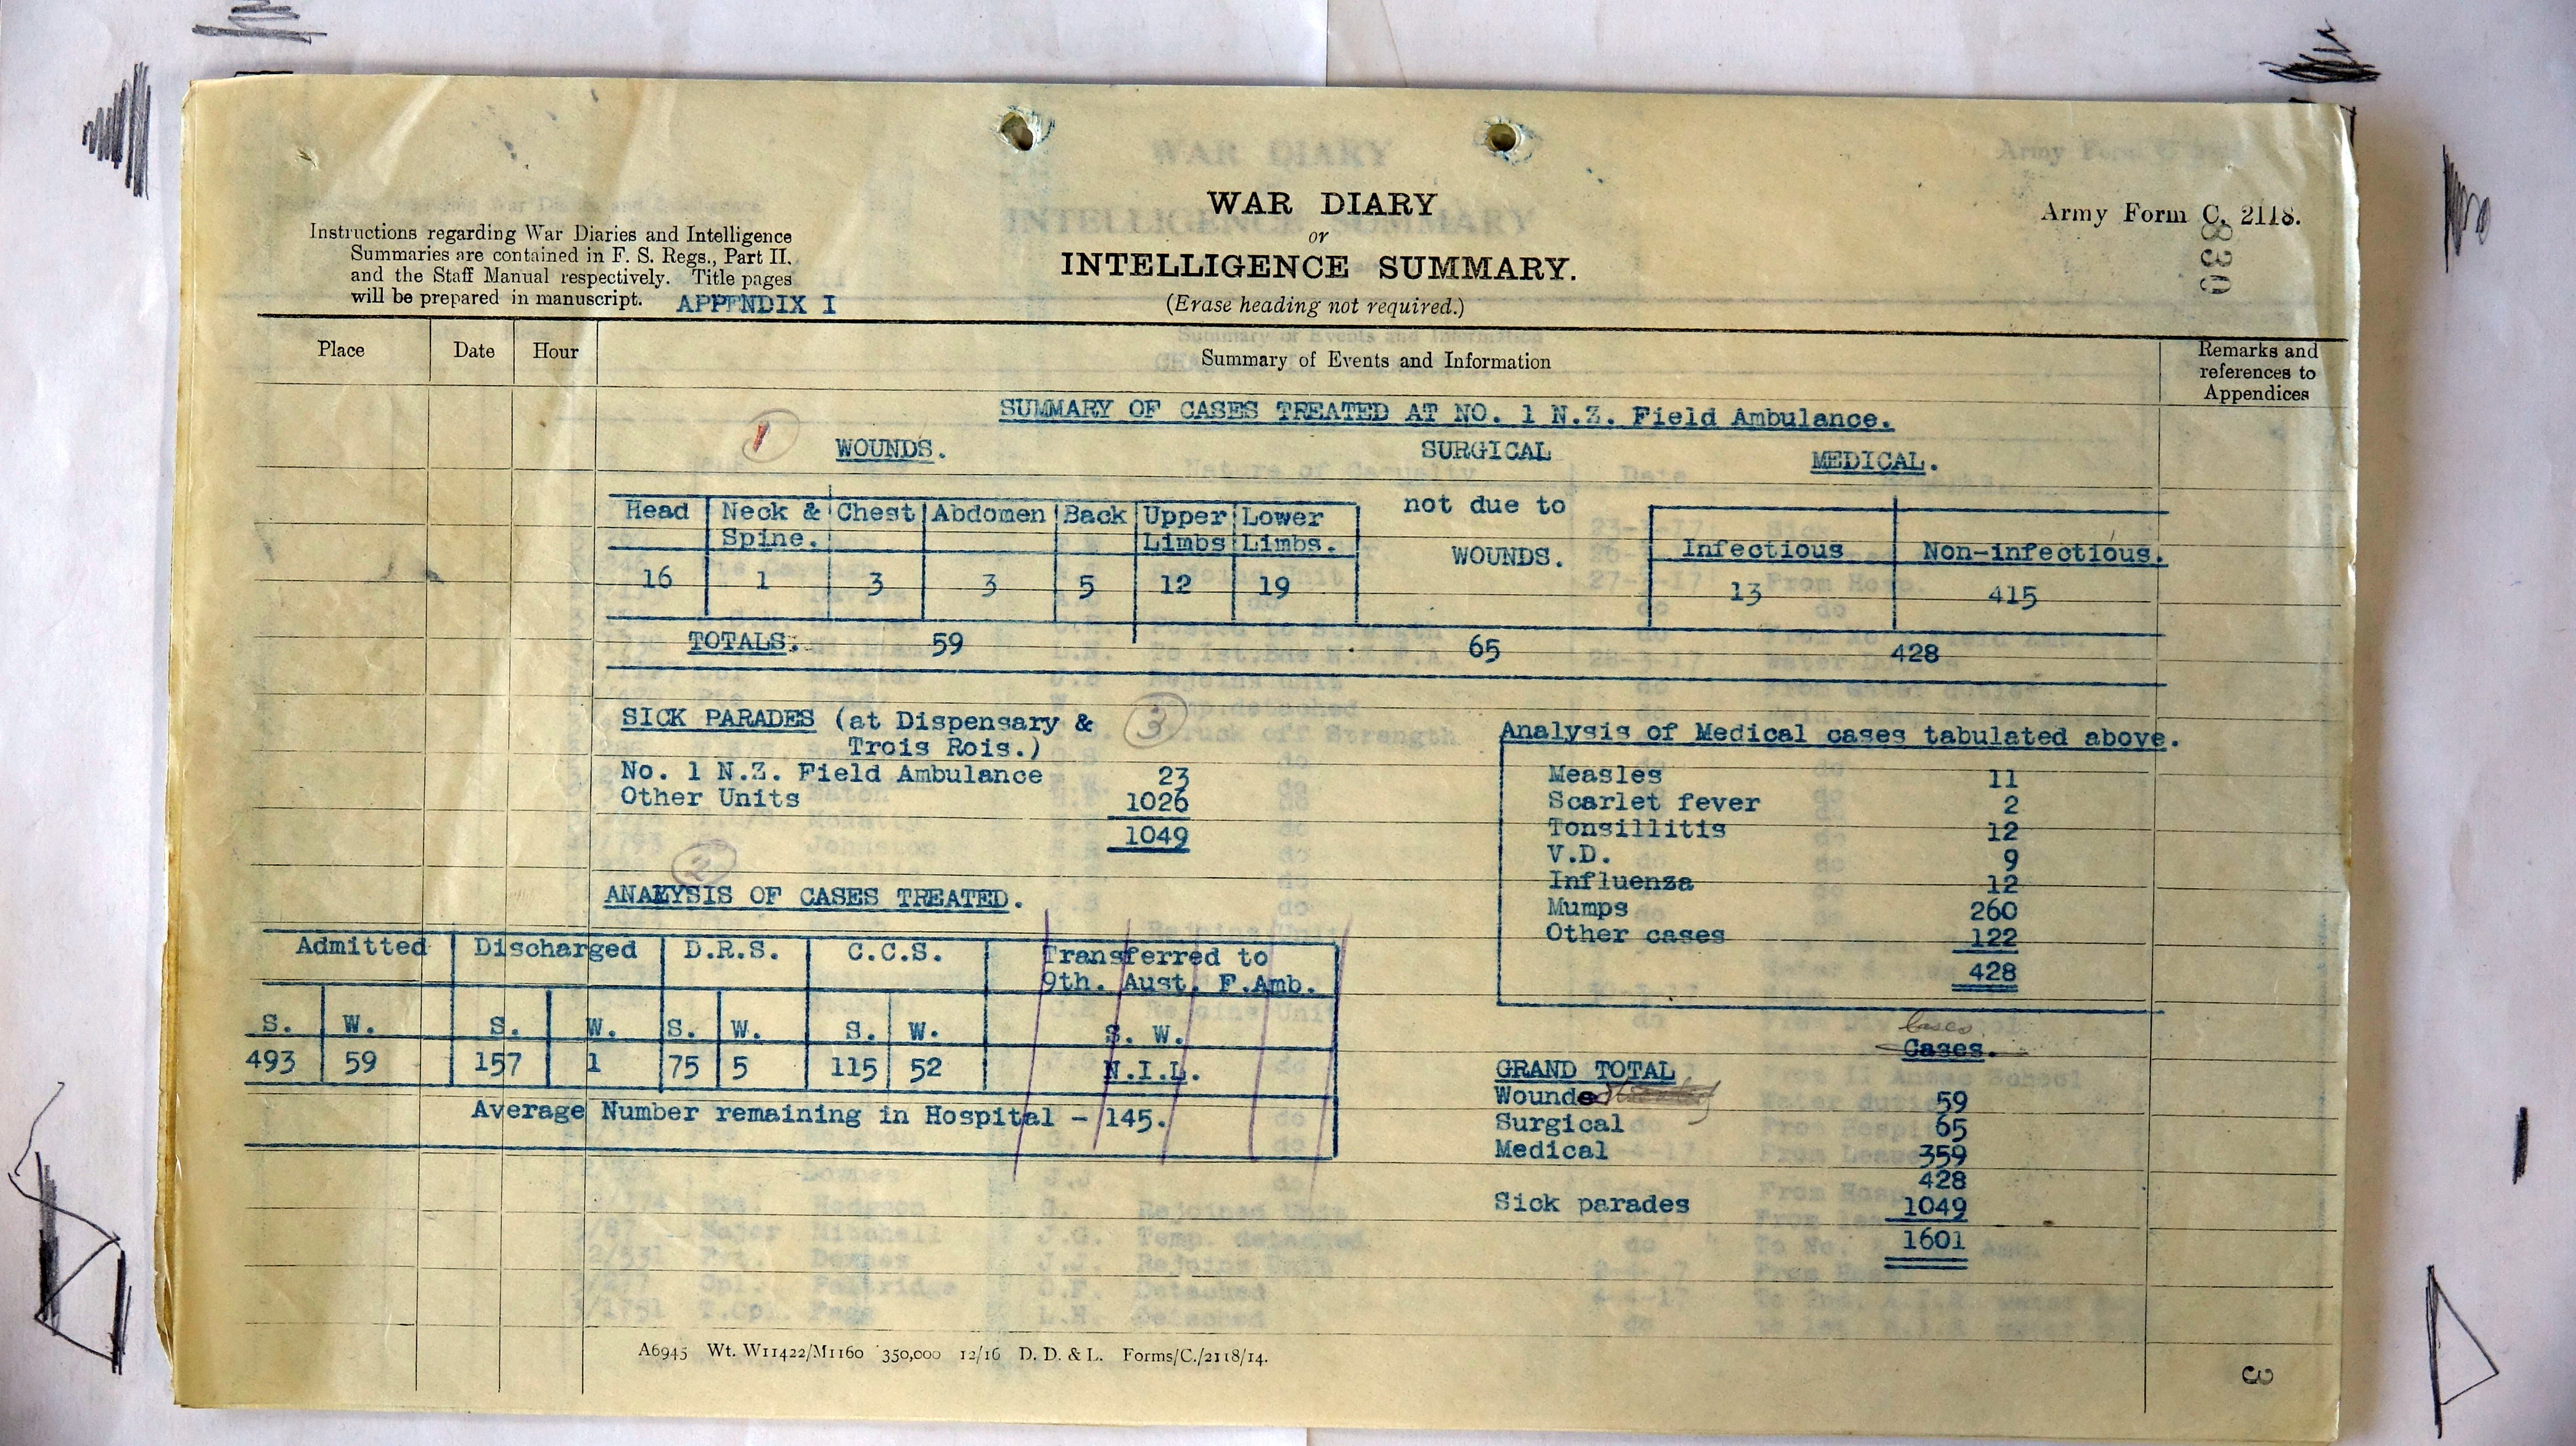 WAR DIARY
or
INTELLIGENCE SUMMARY.
(Erase heading not required.)
Army Form C. 2118.
830
Instructions regarding War Diaries and Intelligence
Summaries are contained in F. S. Regs., Part II.
and the Staff Manual respectively. Title pages
will be prepared in manuscript. APPENDIX I
Place Date Hour Summary of Events and Information Remarks and
references to
Appendices
SUMMARY OF CASES TREATED AT NO. 1 N.Z. Field Ambulance.
1 WOUNDS. SURGICAL MEDICAL.
not due to
WOUNDS.
Head Neck & Chest Abdomen Back Upper Lower
Spine. Limbs Limbs.
Infectious Non-infectious.
16 1 3 3 5 12 19 13 415
TOTALS. 59 65 428
SICK PARADES (at Dispensary & 3
Trois Rois.)
No. 1 N.Z. Field Ambulance 23
Other Units 1026
1049
2
ANALYSIS OF CASES TREATED.
Admitted Discharged D.R.S. C.C.S. Transferred to
9th. Aust. F.Amb.
S. W. S. W. S. W. S. W. S. W.
493 59 157 1 75 5 115 52 N.I.L.
Average Number remaining in Hospital - 145.
Analysis of Medical cases tabulated above.
Measles 11
Scarlet fever 2
Tonsillitis 12
V.D. 9
Influenza 12
Mumps 260
Other cases 122
428
Cases
Cases.
GRAND TOTAL
Wounded 59
Surgical 65
Medical 359
428
Sick parades 1049
1601
A6945 Wt. W11422/M1160 350,000 12/16 D. D. & L. Forms/C./2118/14.
3